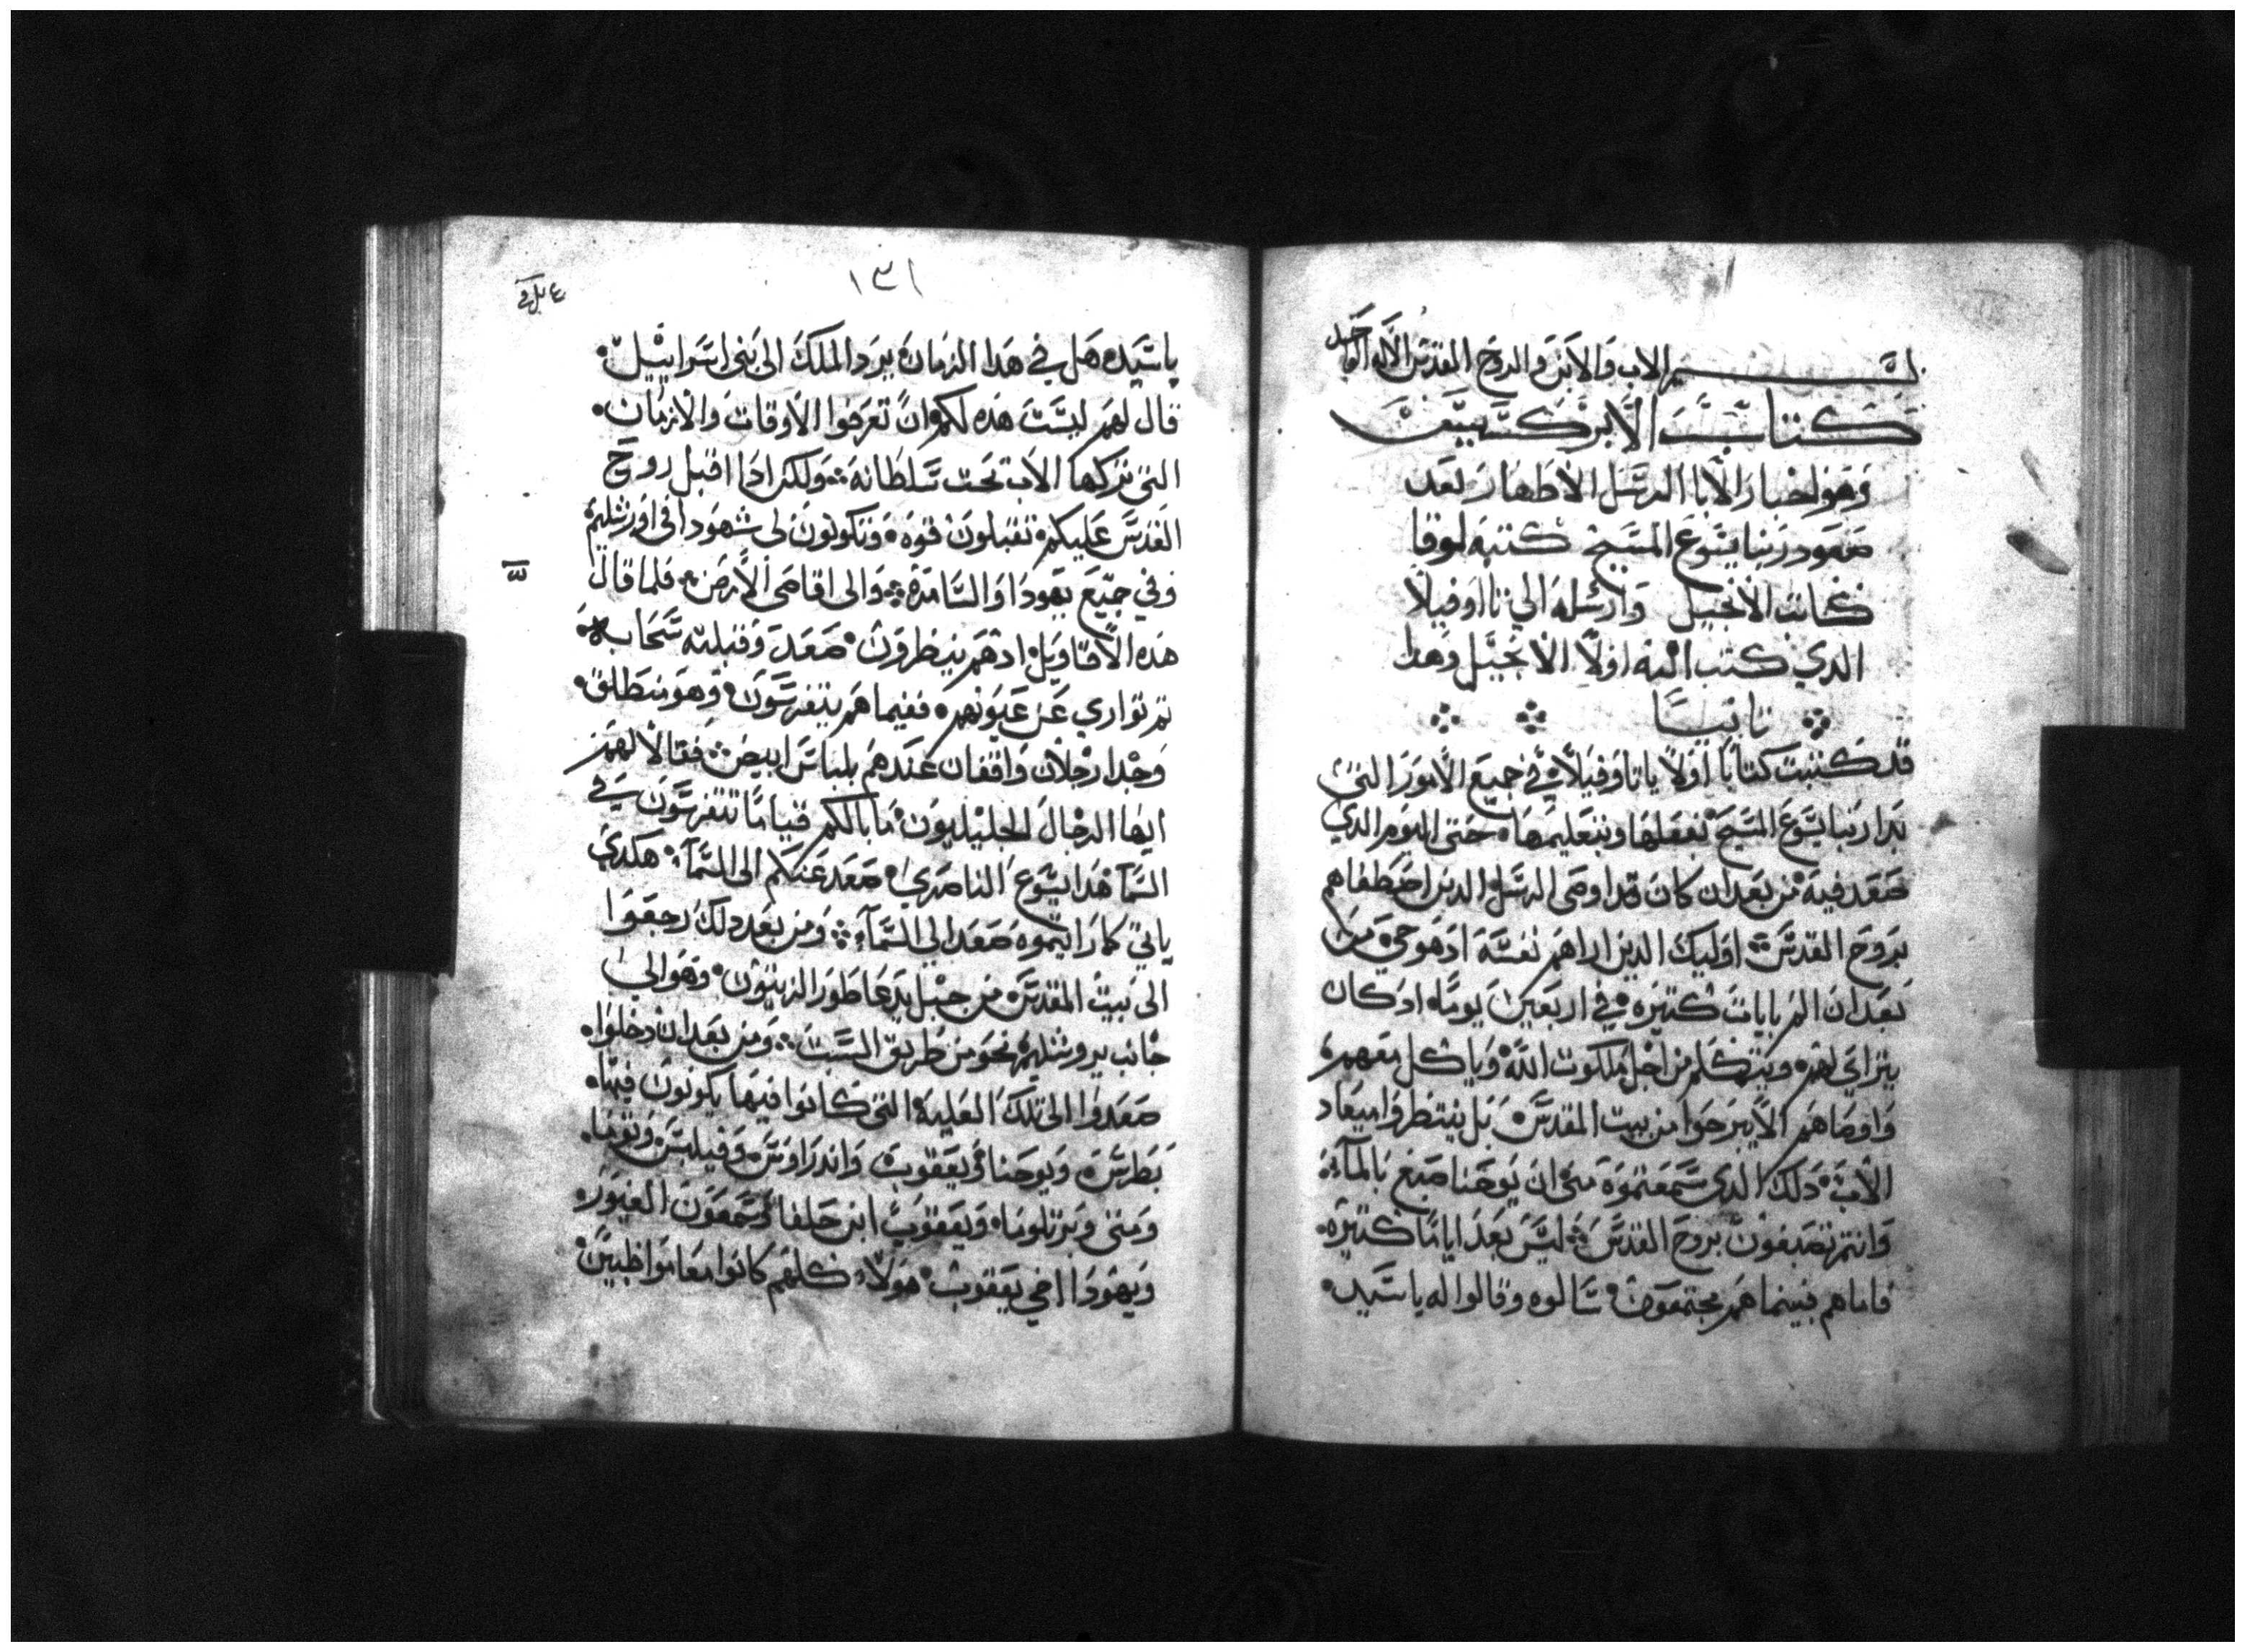 بسم الاب والابن والروح القدس الاله الواحد
كتاب الابركسيس
وهو اخبار الابا الرسل الاطهار بعد
صعود ربنا يسوع المسيح كتبه لوقا
كاتب الانجيل وارسله الي تااوفيلا
الدي كتب اليه اولا الانجيل وهدا
تانيا
قد كتبت كتابا اولا ياتاوفيلا في جميع الامور التي
بدا ربنا يسوع المسيح بفعلها وبتعليمها حتى اليوم الدي
صعد فيه من بعد ان كان قد اوصى الرسل الدين اصطفاهم
بروح القدس اوليك الدين اراهم نفسه اد هو حي من
بعد ان الم باياات كتيره في اربعين يوما اد كان
يترااي لهم ويتكلم من اجل ملكوت الله وياكل معهم
واوصاهم الا يبرحوا من بيت المقدس بل ينتظروا ميعاد
الاب دلك الدي سمعتموه مني ان يوحنا صبغ بالمآء
وانتم تصبغون بروح القدس ليس بعد اياما كتيره
فاما هم فبينما هم مجتمعون سالوه وقالوا له ياسيد
١٣١
ياسيد هل في هدا الزمان يرد الملك الى بني اسراييل
قال لهم ليست هده لكم ان تعرفوا الاوقات والازمان
التي تركها الاب تحت سلطانه ولكن ادا اقبل روح
القدس عليكم تقبلون قوه وتكونون لي شهودا في اورشليم
وفي جميع يهودا والسامرة والى اقاصى الارض فلما قال
هده الاقاويل ادهم ينظرون صعد وقبلته سحابه
تم تواري عن عيونهم ففيما هم يتفرسون وهو منطلق
وجدا رجلان واقفان عندهم بلباس ابيض فقالا لهم
ايها الرجال الجليليون ما بالكم قياما تتفرسون في
السمآ هدا يسوع الناصري صعد عنكم الى السمآء هكدي
ياتي كما رايتموه صعد الى السمآء ومن بعد دلك رجعوا
الى بيت المقدس من جبل يدعا طور الزيتون وهو الي
جانب يروشليم نحو من طريق السبت ومن بعد ان دخلوا
صعدوا الى تلك العلية التي كانوا فيها يكونون فيها
بطرس ويوحنا ويعقوب واندراوس وفيلبس وتوما
ومتى وبرتلوما ويعقوب ابن حلفا وسمعون الغيور
ويهودا اخي يعقوب هولاء كلهم كانوا معا مواظبين